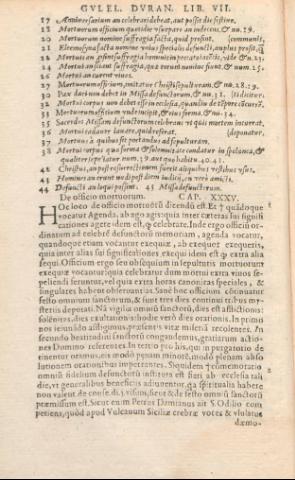 GVLEL. DVRAN. LIB. VII.
17 Anniversarium an celebrari debeat, aut possit die festiuo.
18 Mortuorum officium quotidie vsurpare an indecens. & nu. 19.
20 Mortuorum nomine suffragia facta, quid prosint. (communi,
21 Eleemosyna facta nomine vnius specialis defuncti, an plus prosit,
22 Mortuis an possint suffragia
24 Mortuis an suffragia, quæ eorum nomine fiunt, & num. 25.
26 Mortui an curent viuos.
27 Mortuorum officium, imitatur Christi sepulturam. & nu. 28. 29.
30 Pax dari non debet in Missa defunctorum. & nu.
32 Mortui corpus non debet esse in ecclesia, quandiu
33 Mortuorum officium vnde incipit, & eius forma. & nu. 34.
35 Sacerdos Missam defunctorum celebrans
36 Mortui cadauer lauare, quid referat. (deponatur.
37 Mortui à quibus sit portandus ad sepulturam.
38 Mortui corpus quo forma & solennitate condatur in spelunca, &
qualiter sepeliatur num. 39. aut quo habitu 40. 41.
42 Christus, an post resurrectionem fuerit aliquibus vestibus vsus.
43 Homines an erunt nudi post diem iudicii, an verò amicti.
44 Defuncti an loqui possint. 45 Missa defunctorum.
De officio mortuorum. CAP. XXXV.
Hoc loco de officio mortuorũ dicendũ est. Et † quãdoque
vocatur Agenda, ab ago agis: quia inter cæteras sui signifi
cationes agere idem est, quod celebrare. Inde ergo officiũ or-
dinatum ad celebrẽ defunctorũ memoriam, agenda vocatur,
quandoque etiam vocantur exequiæ, ab exequor exequeris,
quia inter alias sui significationes, exequi idem est quod extra alia
sequi. Officium ergo seu obsequium in sepulturis mortuorum
exequiæ vocantur: quia celebratur dum mortui extra viuos se-
peliendi feruntur, vel quia extra horas canonicas speciales, &
singulares habent obseruantias. Sanè hoc officium
festo omnium sanctorum, & sunt tres dies continui tribus my-
steriis deputati. Nã vigilia omniũ sanctorũ, dies est afflictionis:
solẽnitas, dies exultationis: hodie verò dies orationis. In primo
nos ieiunãdo affligimus, præsentis vitæ miseriã recolentes. In
secundo beatitudini sanctorũ congaudemus, gratiarum actio-
nes Domino referentes. In tertio pro his, qui in purgatorio de
tinentur oramus, eis modò pœnam minorẽ, modò plenam abso
lutionem orationibus impetrantes. Siquidem † cõmemoratio
omniũ fidelium defunctorũ instituta est fieri ab ecclesia tali
die, vt generalibus beneficiis adiuuentur, qui specialia habere
non valent de
præmissum est. Sicut enim Petrus Damianus ait. S. Odilo com
periens, quòd apud Vulcanum Siciliæ crebræ votes & vlulatus
dæmo-